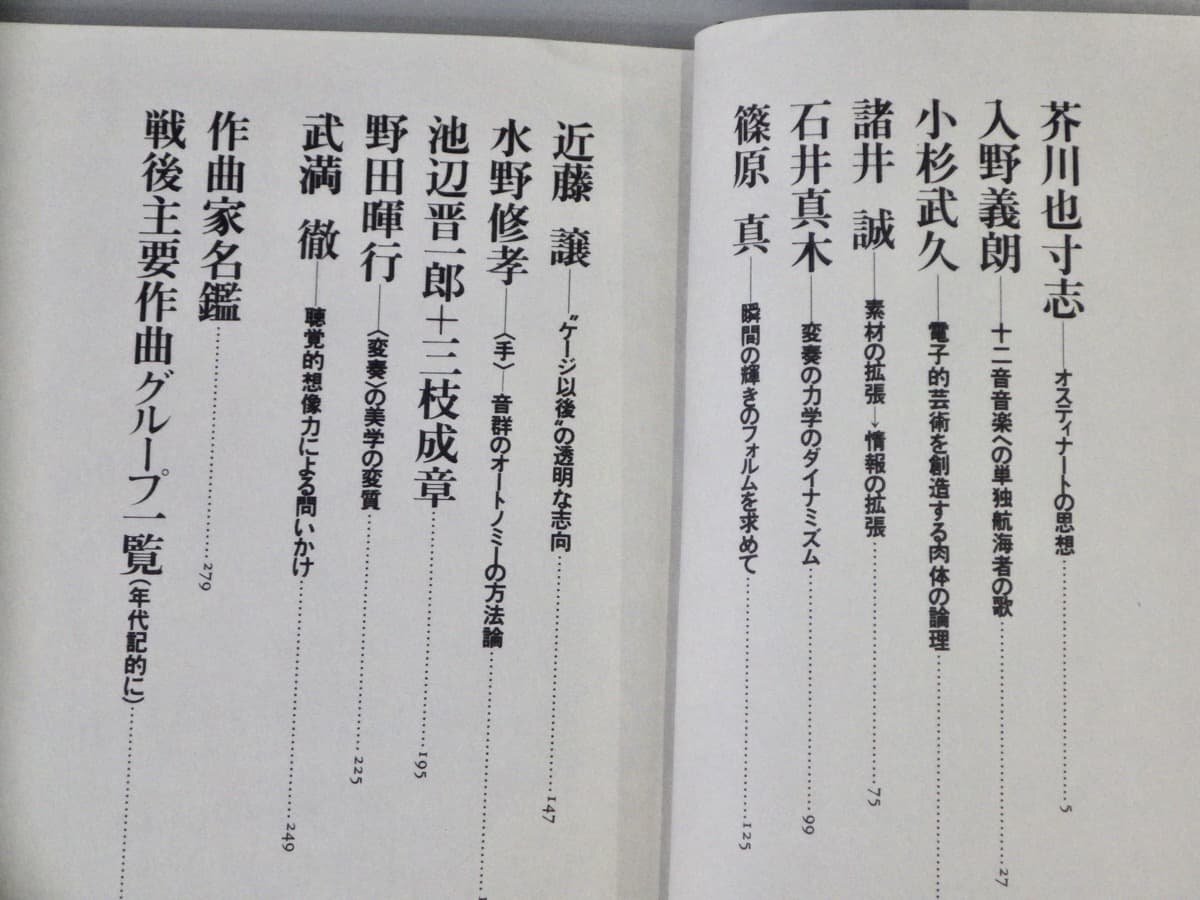 芥川也寸志——オスティナートの思想……5
入野義朗——十二音音楽への単独航海者の歌……27
小杉武久——電子的芸術を創造する肉体の論理……
諸井 誠——素材の拡張→情報の拡張……75
石井真木——変奏の力学のダイナミズム……99
篠原 真——瞬間の輝きのフォルムを求めて……125
近藤 譲——“ケージ以後”の透明な志向……147
水野修孝——〈手〉—音群のオートノミーの方法論……
池辺晋一郎＋三枝成章……195
野田暉行——〈変奏〉の美学の変質……225
武満 徹——聴覚的想像力による問いかけ……249
作曲家名鑑……279
戦後主要作曲グループ一覧（年代記的に）……